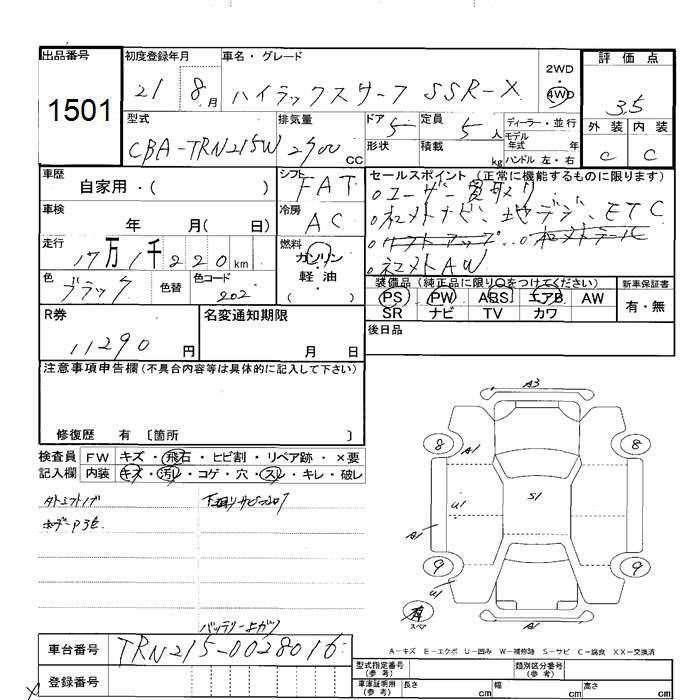 出品番号 初度登録年月 車名・グレード 2WD 評価点
1501 21 8月 ハイラックスサーフ SSR-X 4WD 3.5
型式 排気量 ドア 5 定員 5人 ディーラー・並行 外装 内装
CBA-TRN215W 2700cc 形状 積載 kg モデル年式 年 C C
ハンドル 左・右
車歴 シフト セールスポイント (正常に機能するものに限ります)
自家用・( ) FAT ○ユーザー買取り
車検 冷房 ○社外ナビ、地デジ、ETC
年 月( 日) AC
走行 燃料
17万1千220km ガソリン ○社外AW
色 色替 色コード 軽油 装備品(純正品に限り○をつけてください) 新車保証書
ブラック 202 ( ) PS PW ABS エアB AW 有・無
SR ナビ TV カワ
R券 名変通知期限 後日品
11290円 月 日
注意事項申告欄(不具合内容等は具体的に記入して下さい)
修復歴 有 〔箇所 〕
検査員 FW キズ・飛石・ヒビ割・リペア跡・×要
記入欄 内装 キズ・汚レ・コゲ・穴・スレ・キレ・破レ
A3
8 8
A1
U1 S1
A1
9 9
U1
有 スペア A1
A-キズ E-エクボ U-凹み W-補修跡 S-サビ C-腐食 XX-交換済
車台番号 TRN215-0028016
型式指定番号(参考) 類別区分番号(参考)
登録番号 車庫証明用(参考) 長さ cm 幅 cm 高さ cm